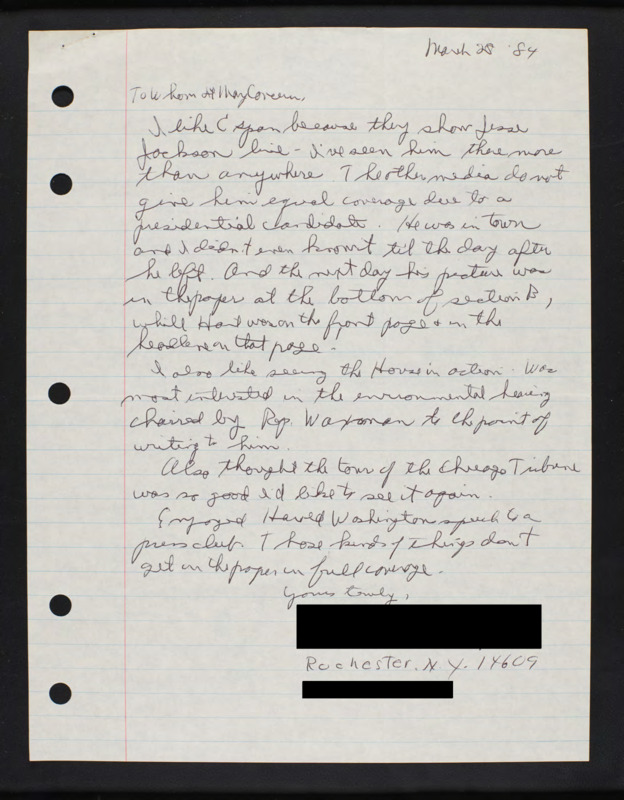 March 28 '84
To Whom It May Concern,
I like C span because they show Jesse
Jackson live - I've seen him there more
than anywhere. The other media do not
give him equal coverage due to a
presidential candidate. He was in town
and I didn't even know it til the day after
he left. And the next day his picture was
in the paper at the bottom of section B,
while Hart was on the front page & in the
headline on that page.
I also like seeing the House in action. Was
most interested in the environmental hearing
chaired by Rep. Waxoman to the point of
writing to him.
Also thought the tour of the Chicago Tribune
was so good I'd like to see it again.
Enjoyed Harold Washington speech to a
press club. Those kinds of things don't
get in the paper in full coverage.
Yours truly,
Rochester, N.Y. 14609